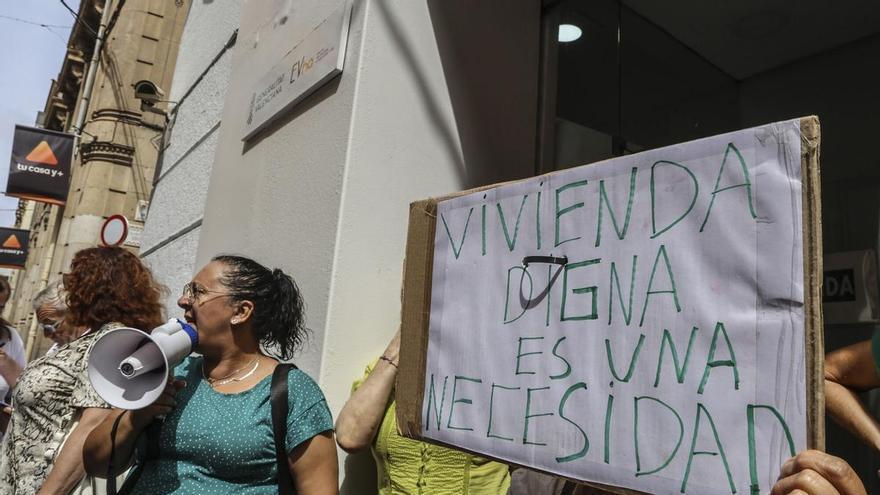 GENERALITAT
VALENCIANA
EVha
tu casa y+
tu casa y+
VIVIENDA
DIGNA
ES UNA
NECESIDAD
DA